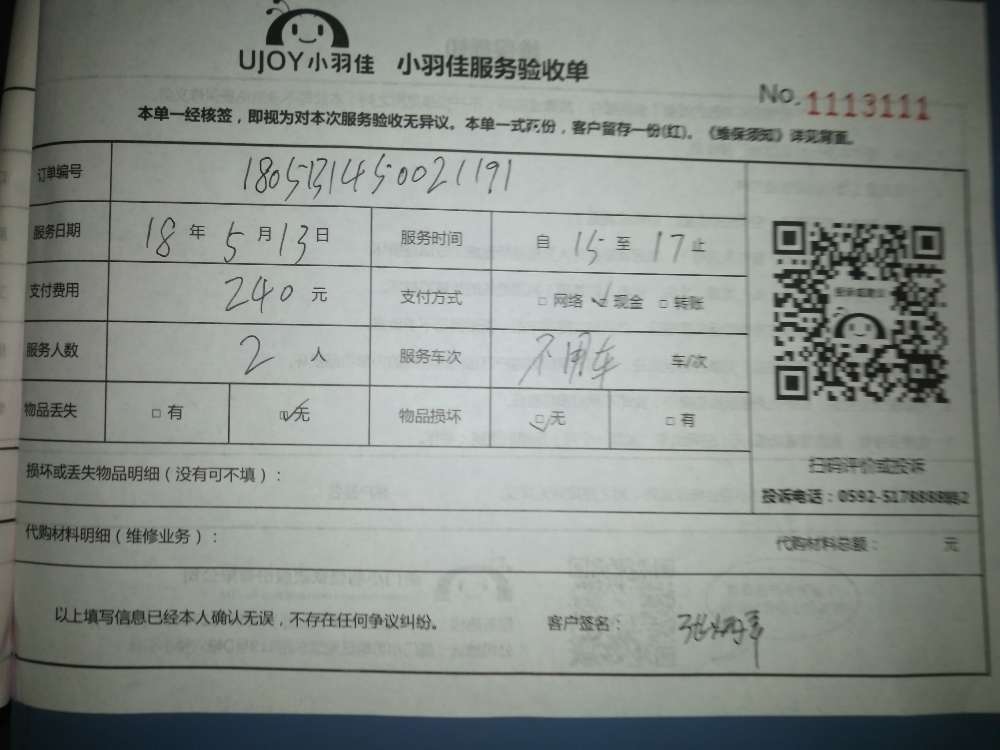 UJOY小羽佳 小羽佳服务验收单
No. 1113111
本单一经核签，即视为对本次服务验收无异议。本单一式两份，客户留存一份(红)。《维保须知》详见背面。
订单编号 1805131450021191
服务日期 18 年 5 月 13 日 服务时间 自 15 至 17 止
支付费用 240 元 支付方式 □ 网络 ☑ 现金 □ 转账
服务人数 2 人 服务车次 不用车 车/次
物品丢失 □ 有 ☑ 无 物品损坏 ☑ 无 □ 有
扫码评价或投诉
损坏或丢失物品明细（没有可不填）：
投诉电话：0592-5178888
代购材料明细（维修业务）： 代购材料总额： 元
以上填写信息已经本人确认无误，不存在任何争议纠纷。 客户签名：